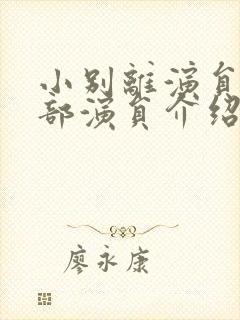 小别離演員
部演員介紹
廖永康